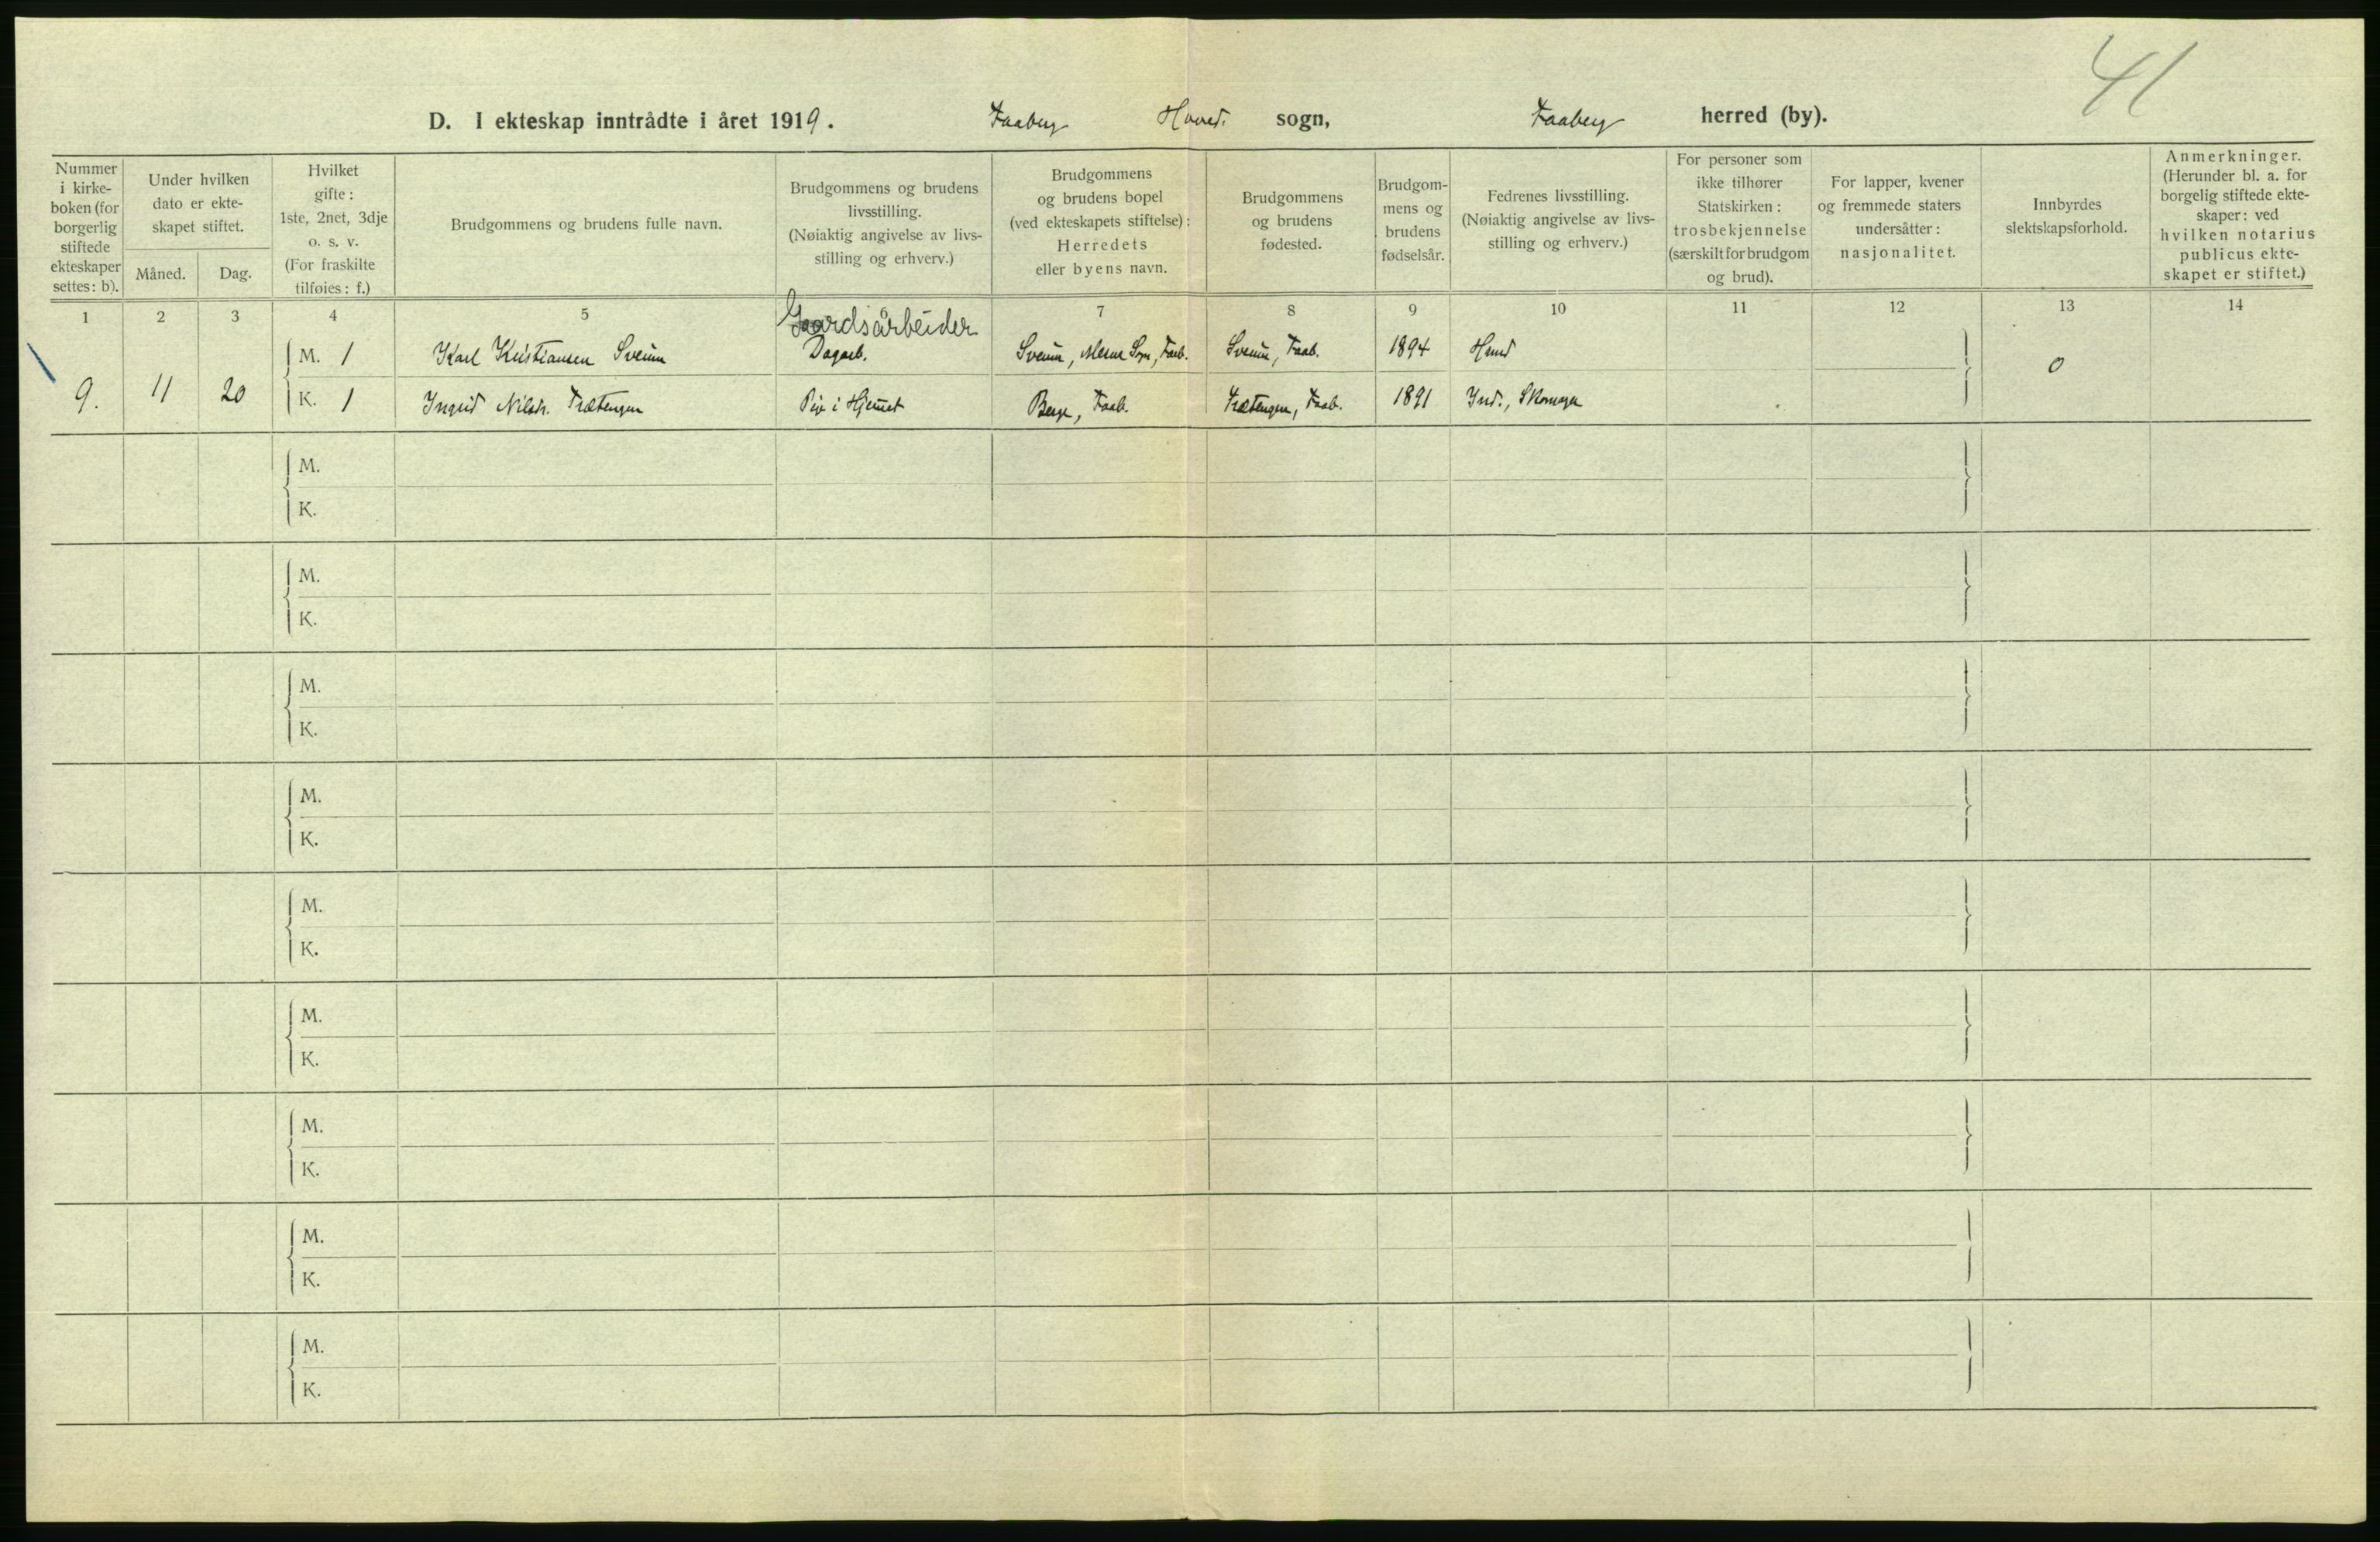 41
D. I ekteskap inntrådte i året 1919. Faaberg Hoved. sogn, Faaberg herred (by).
Nummer
i kirke-
boken (for
borgerlig
stiftede
ekteskaper
settes: b).
Under hvilken
dato er ekte-
skapet stiftet.
Måned.
Dag.
Hvilket
gifte:
1ste, 2net, 3dje
o. s. v.
(For fraskilte
tilføies: f.)
Brudgommens og brudens fulle navn.
Brudgommens og brudens
livsstilling.
(Nøiaktig angivelse av livs-
stilling og erhverv.)
Brudgommens
og brudens bopel
(ved ekteskapets stiftelse):
Herredets
eller byens navn.
Brudgommens
og brudens
fødested.
Brudgom-
mens og
brudens
fødselsår.
Fedrenes livsstilling.
(Nøiaktig angivelse av livs-
stilling og erhverv.)
For personer som
ikke tilhører
Statskirken:
trosbekjennelse
(særskilt for brudgom
og brud).
For lapper, kvener
og fremmede staters
undersåtter:
nasjonalitet.
Innbyrdes
slektskapsforhold.
Anmerkninger.
(Herunder bl. a. for
borgelig stiftede ekte-
skaper: ved
hvilken notarius
publicus ekte-
skapet er stiftet.)
1 2 3 4 5 6 7 8 9 10 11 12 13 14
Gaardsarbeider
M. 1 Karl Kristiansen Sveum Dagarb. Sveum, Mesna Sogn, Faab. Sveum, Faab. 1894 Husmd
9. 11 20 K. 1 Ingrid Nilsdr. Trætengen Pige i Hjemmet Berge, Faab. Trætengen, Faab. 1891 Ind., Skomager
0
M.
K.
M.
K.
M.
K.
M.
K.
M.
K.
M.
K.
M.
K.
M.
K.
M.
K.